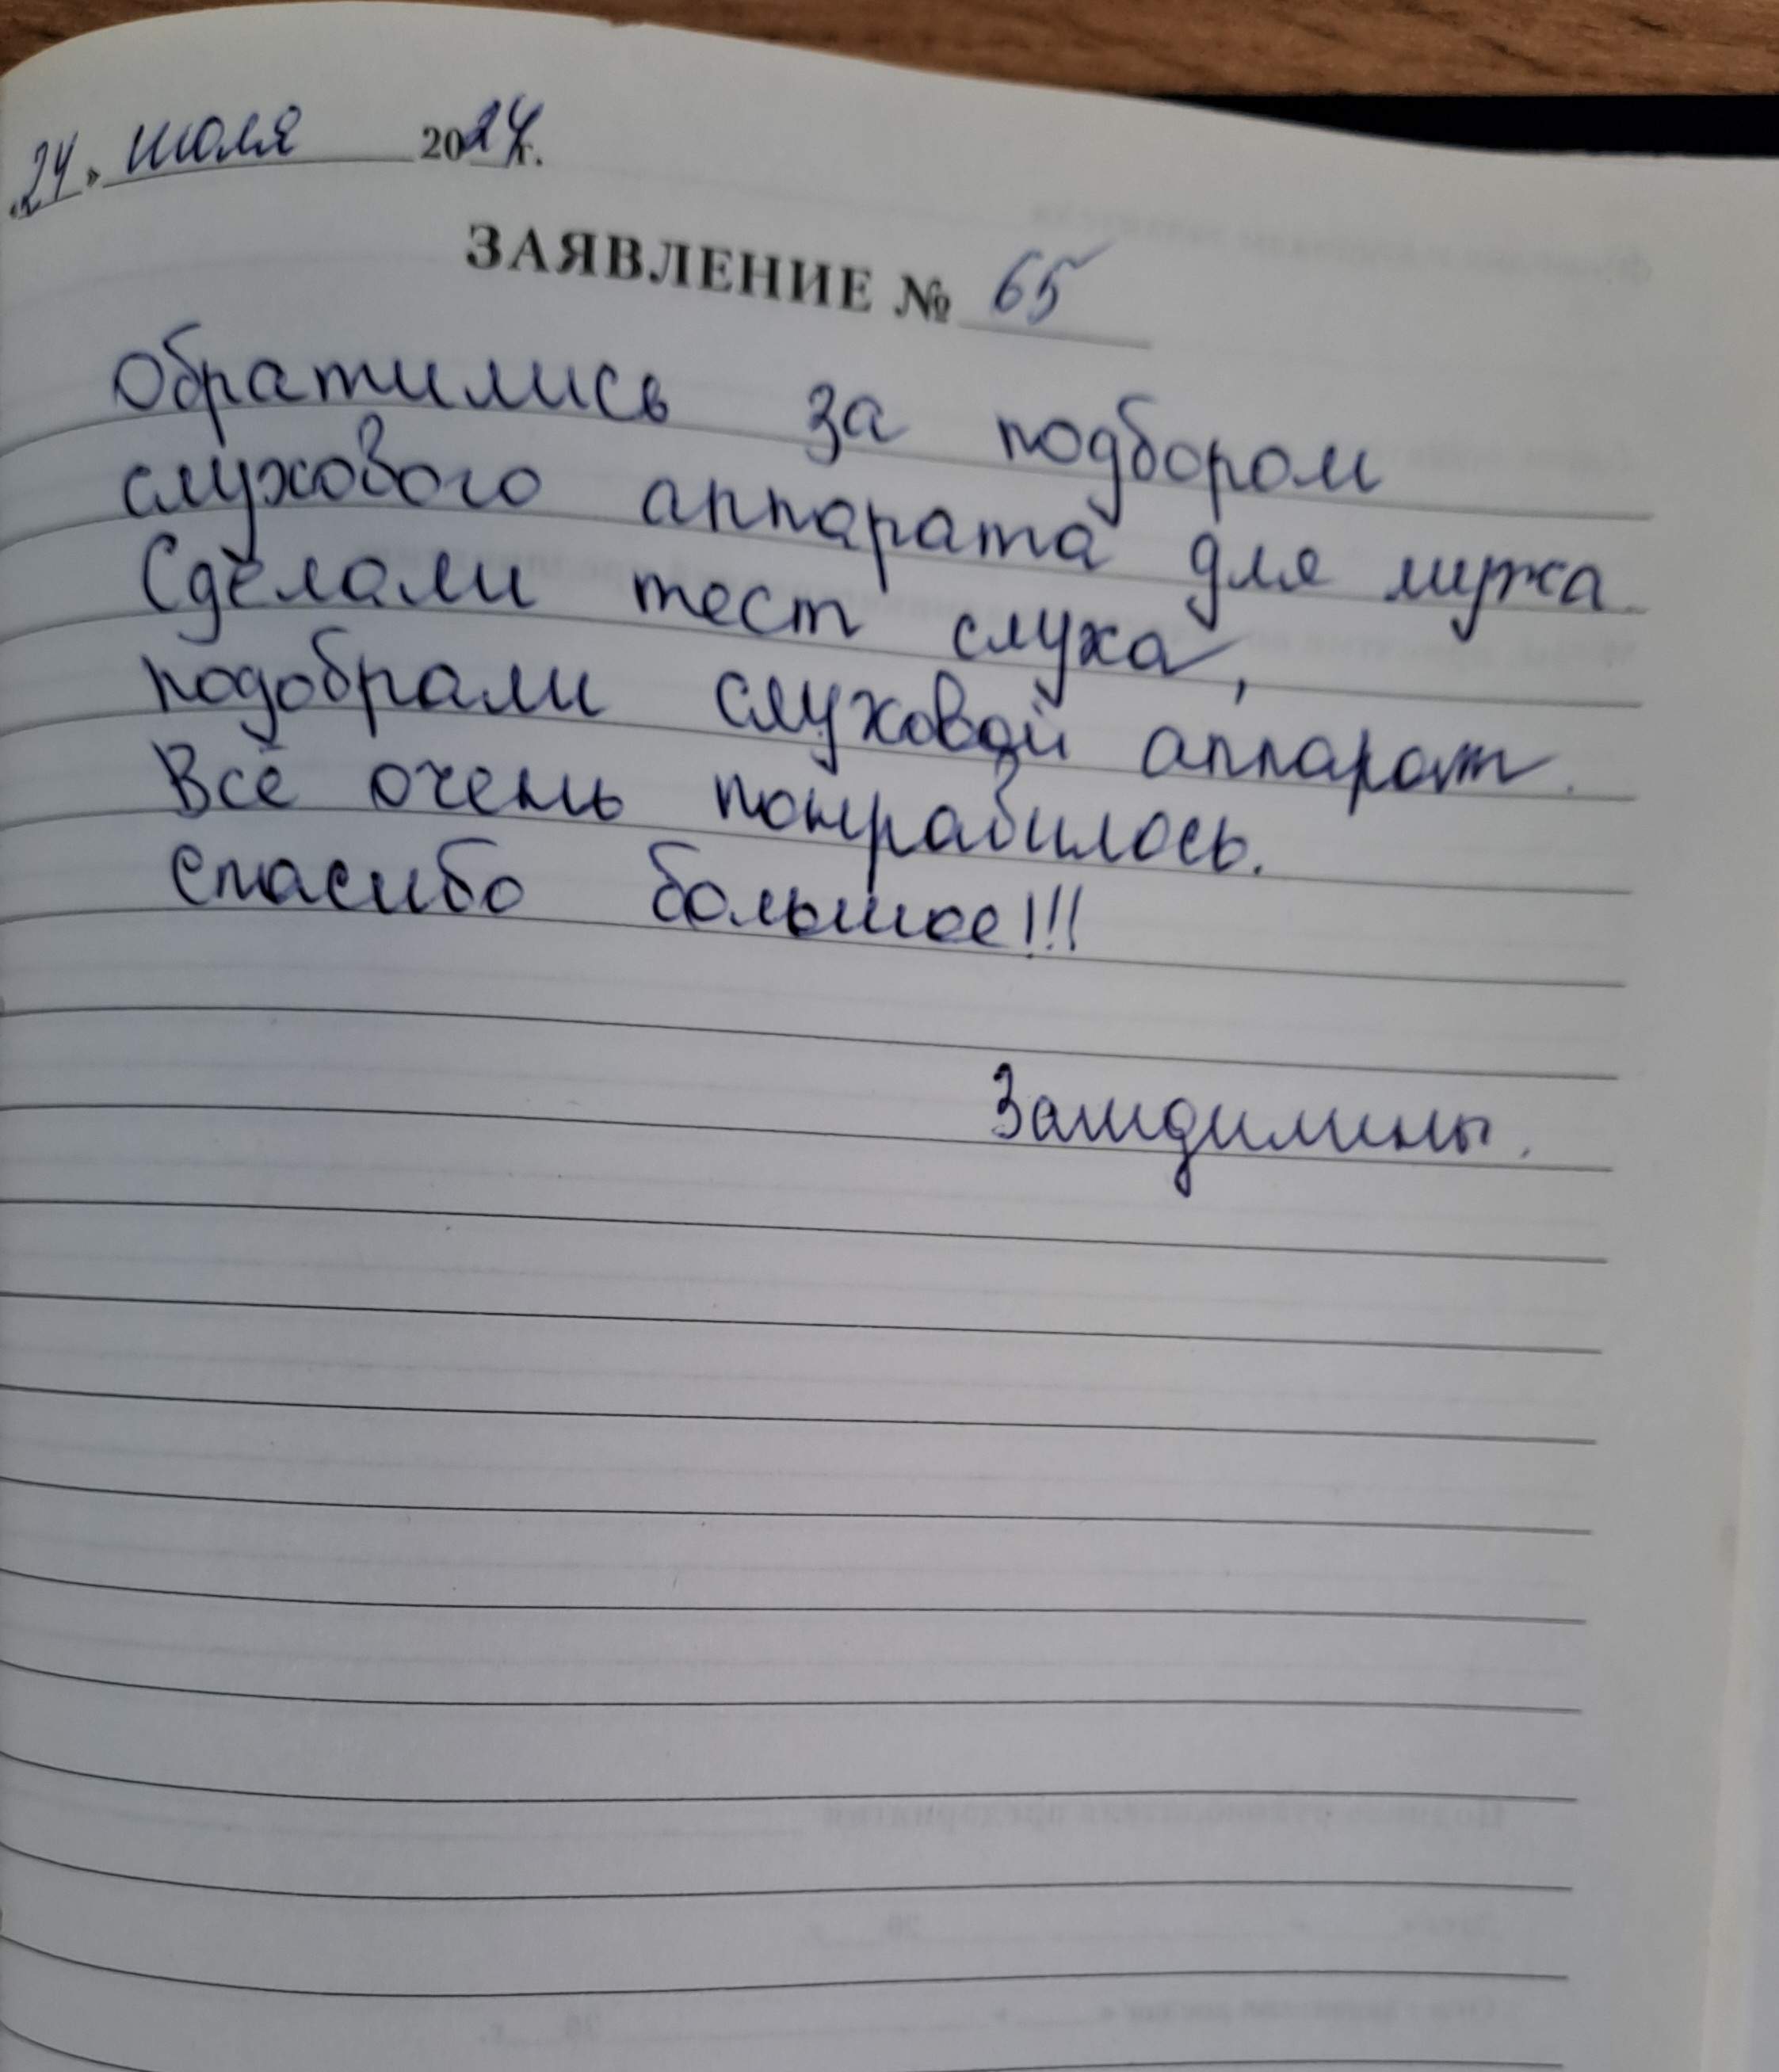 «24» июля 2024г.
ЗАЯВЛЕНИЕ № 65
Обратились за подбором
слухового аппарата для мужа.
Сделали тест слуха,
подобрали слуховой аппарат.
Всё очень понравилось.
Спасибо большое!!!